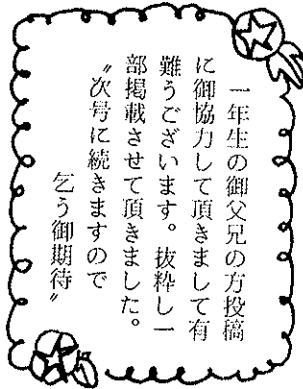 一年生の御父兄の方投稿
に御協力して頂きまして有
難うございます。抜粋し一
部掲載させて頂きました。
〝次号に続きますので
乞う御期待〟